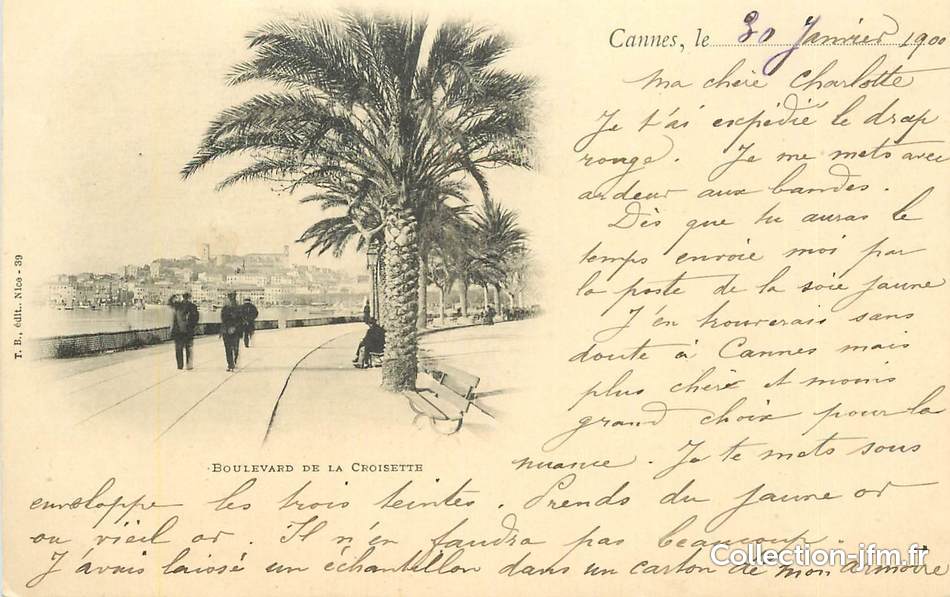 Cannes, le 30 Janvier 1900
Ma chère Charlotte
Je t'ai expédié le drap
rouge. Je me mets avec
ardeur aux bandes.
Dès que tu auras le
temps envoie moi par
la poste de la soie jaune
J'en trouverais sans
doute à Cannes mais
plus chère et moins
grand choix pour la
nuance. Je te mets sous
enveloppe les trois teintes. Prends du jaune or
ou vieil or. Il n'en faudra pas beaucoup.
J'avais laissé un échantillon dans un carton de mon armoire
T. B., édit., Nice - 39
BOULEVARD DE LA CROISETTE
Collection-jfm.fr